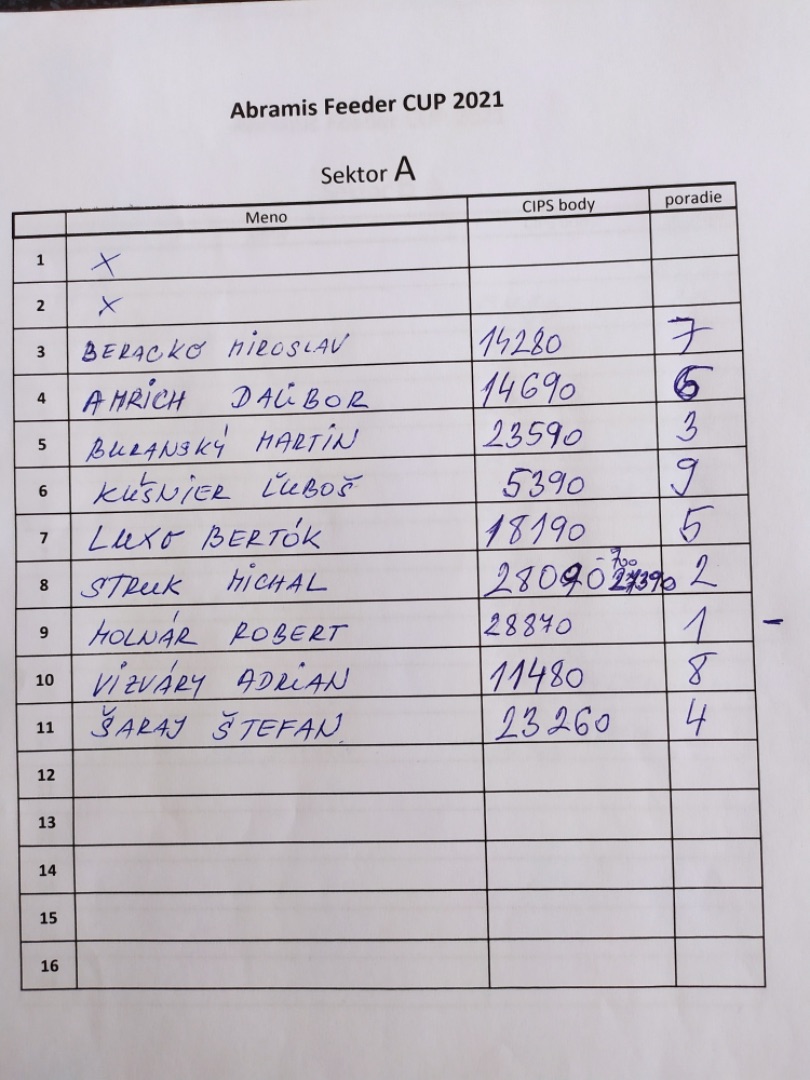 Abramis Feeder CUP 2021
Sektor A
Meno CIPS body poradie
1 X
2 X
3 BERACKO MIROSLAV 14280 7
4 AMRICH DALIBOR 14690 6
5 BURANSKÝ MARTIN 23590 3
6 KUŠNIER ĽUBOŠ 5390 9
7 LUXO BERTÓK 18190 5
8 STRUK MICHAL 28090 -700 27390 2
9 MOLNÁR ROBERT 28870 1 -
10 VIZVÁRY ADRIAN 11480 8
11 ŠARAJ ŠTEFAN 23260 4
12
13
14
15
16